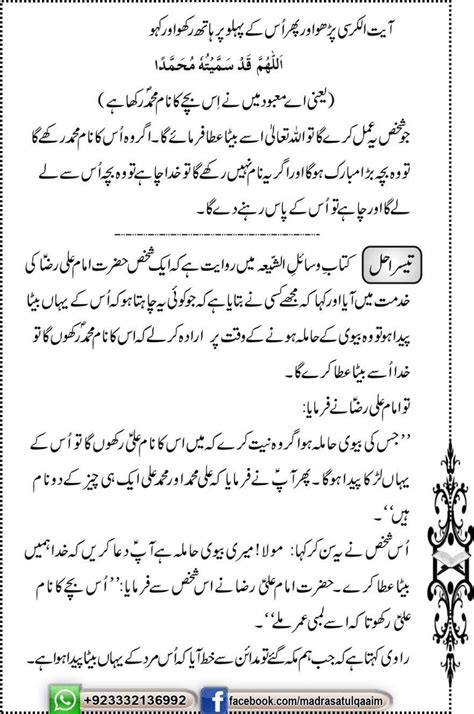 آیت الکرسی پڑھو اور پھر اُس کے پہلو پر ہاتھ رکھو اور کہو
اَللّٰهُمَّ قَدْ سَمَّيْتُهٗ مُحَمَّدًا
(یعنی اے معبود میں نے اِس بچے کا نام محمدؐ رکھا ہے)
جو شخص یہ عمل کرے گا تو اللہ تعالیٰ اسے بیٹا عطا فرمائے گا۔ اگر وہ اُس کا نام محمد رکھے گا
تو وہ بچہ بڑا مبارک ہوگا اور اگر یہ نام نہیں رکھے گا تو خدا چاہے تو وہ بچہ اُس سے لے
لے گا اور چاہے تو اُس کے پاس رہنے دے گا۔
تیسرا حل کتاب وسائل الشیعہ میں روایت ہے کہ ایک شخص حضرت امام علی رضاؑ کی
خدمت میں آیا اور کہا کہ مجھے کسی نے بتایا ہے کہ جو کوئی یہ چاہتا ہو کہ اُس کے یہاں بیٹا
پیدا ہو تو وہ بیوی کے حاملہ ہونے کے وقت پر ارادہ کرلے کہ اس کا نام محمدؐ رکھوں گا تو
خدا اُسے بیٹا عطا کرے گا۔
تو امام علی رضاؑ نے فرمایا:
’’جس کی بیوی حاملہ ہو اگر وہ نیت کرے کہ میں اس کا نام علیؑ رکھوں گا تو اُس کے
یہاں لڑکا پیدا ہوگا۔ پھر آپؑ نے فرمایا کہ علی محمدؐ اور محمد علی ایک ہی چیز کے دو نام
ہیں‘‘۔
اُس شخص نے یہ سن کر کہا: مولا! میری بیوی حاملہ ہے آپؑ دعا کریں کہ خدا ہمیں
بیٹا عطا کرے۔ حضرت امام علیؑ رضا نے اس شخص سے فرمایا: ’’اُس بچے کا نام
علیؑ رکھو تا کہ اسے لمبی عمر ملے‘‘۔
راوی کہتا ہے کہ جب ہم مکہ گئے تو مدائن سے خط آیا کہ اُس مرد کے یہاں بیٹا پیدا ہوا ہے۔
+923332136992 facebook.com/madrasatulqaaim